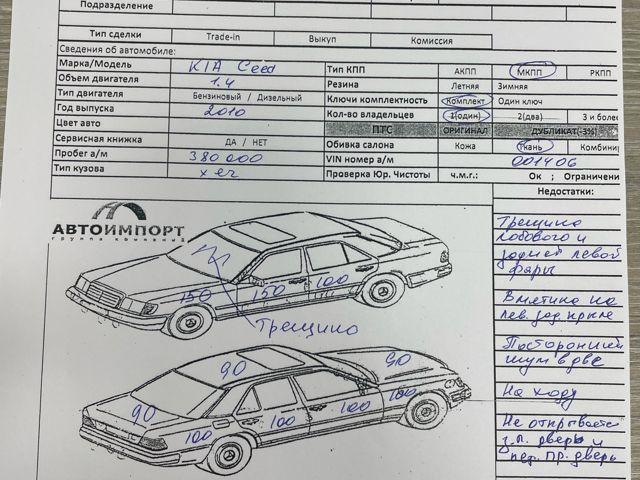 Подразделение
Тип сделки Trade-in Выкуп Комиссия
Сведения об автомобиле:
Марка/Модель KIA Ceed Тип КПП АКПП МКПП РКПП
Объем двигателя 1.4 Резина Летняя Зимняя
Тип двигателя Бензиновый / Дизельный Ключи комплектность Комплект Один ключ
Год выпуска 2010 Кол-во владельцев 1(один) 2(два) 3 и более
Цвет авто ПТС ОРИГИНАЛ ДУБЛИКАТ(-3%)
Сервисная книжка ДА / НЕТ Обивка салона Кожа Ткань Комбини
Пробег а/м 380 000 VIN номер а/м 001406
Тип кузова хеч Проверка Юр. Чистоты ч.м.г.: Ок ; Ограничени
Недостатки:
АВТОИМПОРТ
группа компаний
Трещина
лобового и
задней левой
фары
Вмятина на
лев. зад. крыле
Посторонний
шум в две
На ходу
Не открывается
з.л. дверь и
пер. пр. дверь
150 150 100
Трещина
90 90
90 100 100 100 100